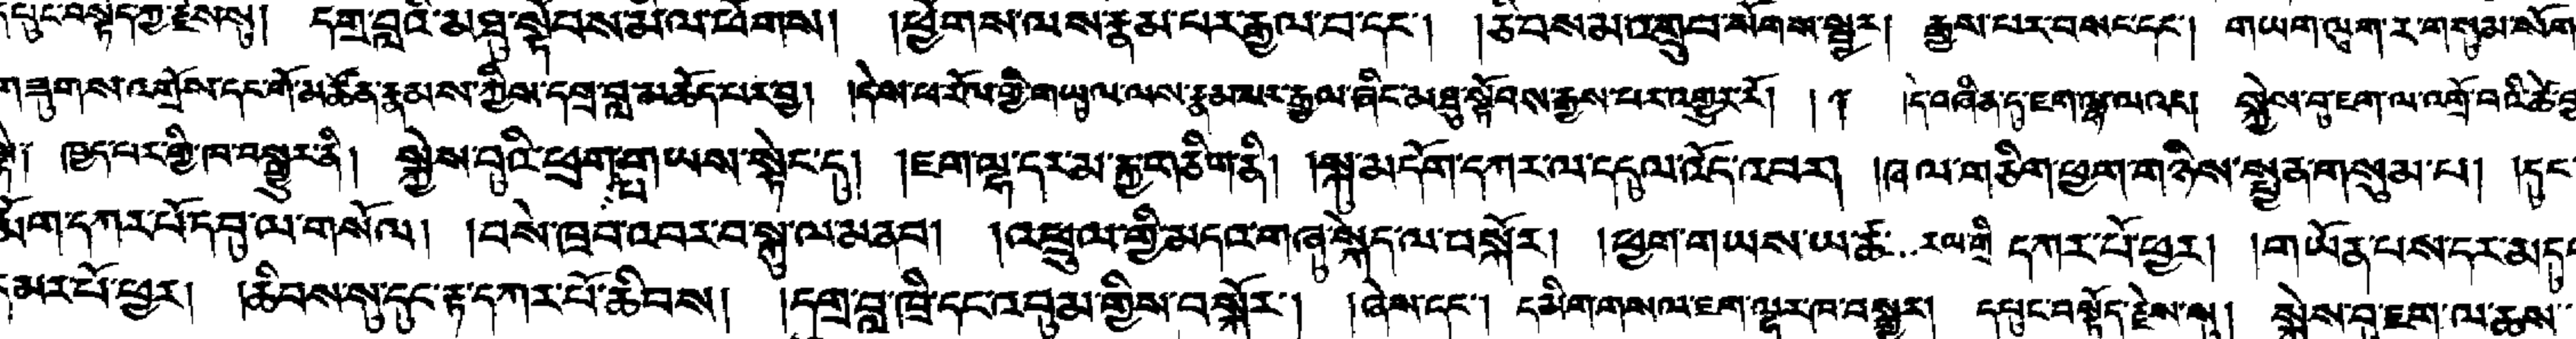 དཔུང་བསྟོད་ཀྱི་རྗེས་སུ། དགྲ་བླའི་མཐུ་སྟོབས་མི་ལ་ཕོགས། །ཕྱོགས་ལས་རྣམ་པར་རྒྱལ་བ་དང་། །ཅི་བསམ་འགྲུབ་སོགས་སྦྱར། རྒྱས་པར་བསང་དང་། གཡག་ལུག་ར་གསུམ་སོག
གཟུགས་འགྲོས་དང་གོ་མཚོན་རྣམས་ཀྱིས་དགྲ་བླ་མཆོད་པར་བྱ། །དེས་ཕ་རོལ་གྱི་གཡུལ་ལས་རྣམ་པར་རྒྱལ་ཞིང་མཐུ་སྟོབས་རྒྱས་པར་འགྱུར་རོ། ། དེ་བཞིན་དུ་ཇག་ལྷ་ལའང། སྐྱེས་བུ་ཇག་ལ་འགྲོ་བའི་ཚེ་བྱ
སྟེ། ཁྱད་པར་གྱི་ཁ་བསྒྱུར་ནི། སྐྱེས་བུའི་ཕྲག་པ་གཡས་སྟེང་དུ། །ཇག་ལྷ་དར་མ་རྐྱ་གཅིག་ནི། །སྐུ་མདོག་དཀར་ལ་དངུལ་འོད་འབར། །ཞལ་གཅིག་ཕྱག་གཉིས་སྤྱན་གསུམ་པ། །དུང་
རྨོག་དཀར་པོ་དབུ་ལ་གསོལ། །བསེ་ཁྲབ་འབར་བ་སྐུ་ལ་མནབ། །འཕྲུལ་གྱི་མདའ་གཞུ་སྐེད་ལ་བསྐོར། །ཕྱག་གཡས་ཡ་ཚ་རལ་གྲི་དཀར་པོ་ཕྱར། །གཡོན་པས་དར་མདུང
དམར་པོ་ཕྱར། །ཆིབས་སུ་དུང་རྟ་དཀར་པོ་ཆིབས། །དགྲ་བླ་ཁྲི་དང་འབུམ་གྱིས་བསྐོར་། །ཞེས་དང་། དམིགས་གསལ་ཇག་ལྷར་ཁ་བསྒྱུར། དཔུང་བསྟོད་རྗེས་སུ། སྐྱེས་བུ་ཇག་ལ་ཆས་